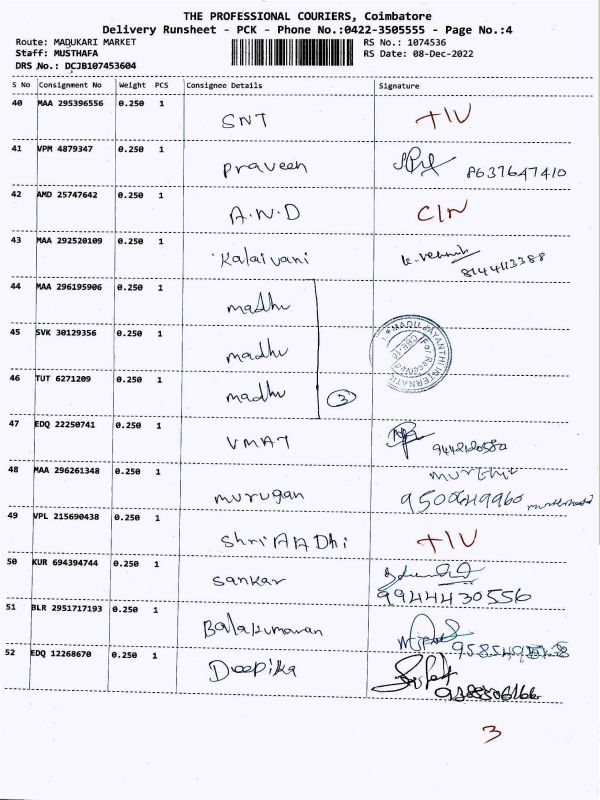 THE PROFESSIONAL COURIERS, Coimbatore
Delivery Runsheet - PCK - Phone No.:0422-3505555 - Page No.:4
Route: MADUKARI MARKET RS No.: 1074536
Staff: MUSTHAFA RS Date: 08-Dec-2022
DRS No.: DCJB107453604
S No Consignment No Weight PCS Consignee Details Signature
40 MAA 295396556 0.250 1 SNT
41 VPM 4879347 0.250 1 Praveen 8637647410
42 AMD 25747642 0.250 1 A.N.D
43 MAA 292520109 0.250 1 Kalaivani
44 MAA 296195906 0.250 1 madhu
45 SVK 30129356 0.250 1 madhu
46 TUT 6271209 0.250 1 madhu 3
47 EDQ 22250741 0.250 1 VMAT
48 MAA 296261348 0.250 1 murugan 9500649960
49 VPL 215690438 0.250 1 Shri AADhi
50 KUR 694394744 0.250 1 Sankar 9944430556
51 BLR 2951717193 0.250 1 Balakumaran
52 EDQ 12268670 0.250 1 Deepika
3